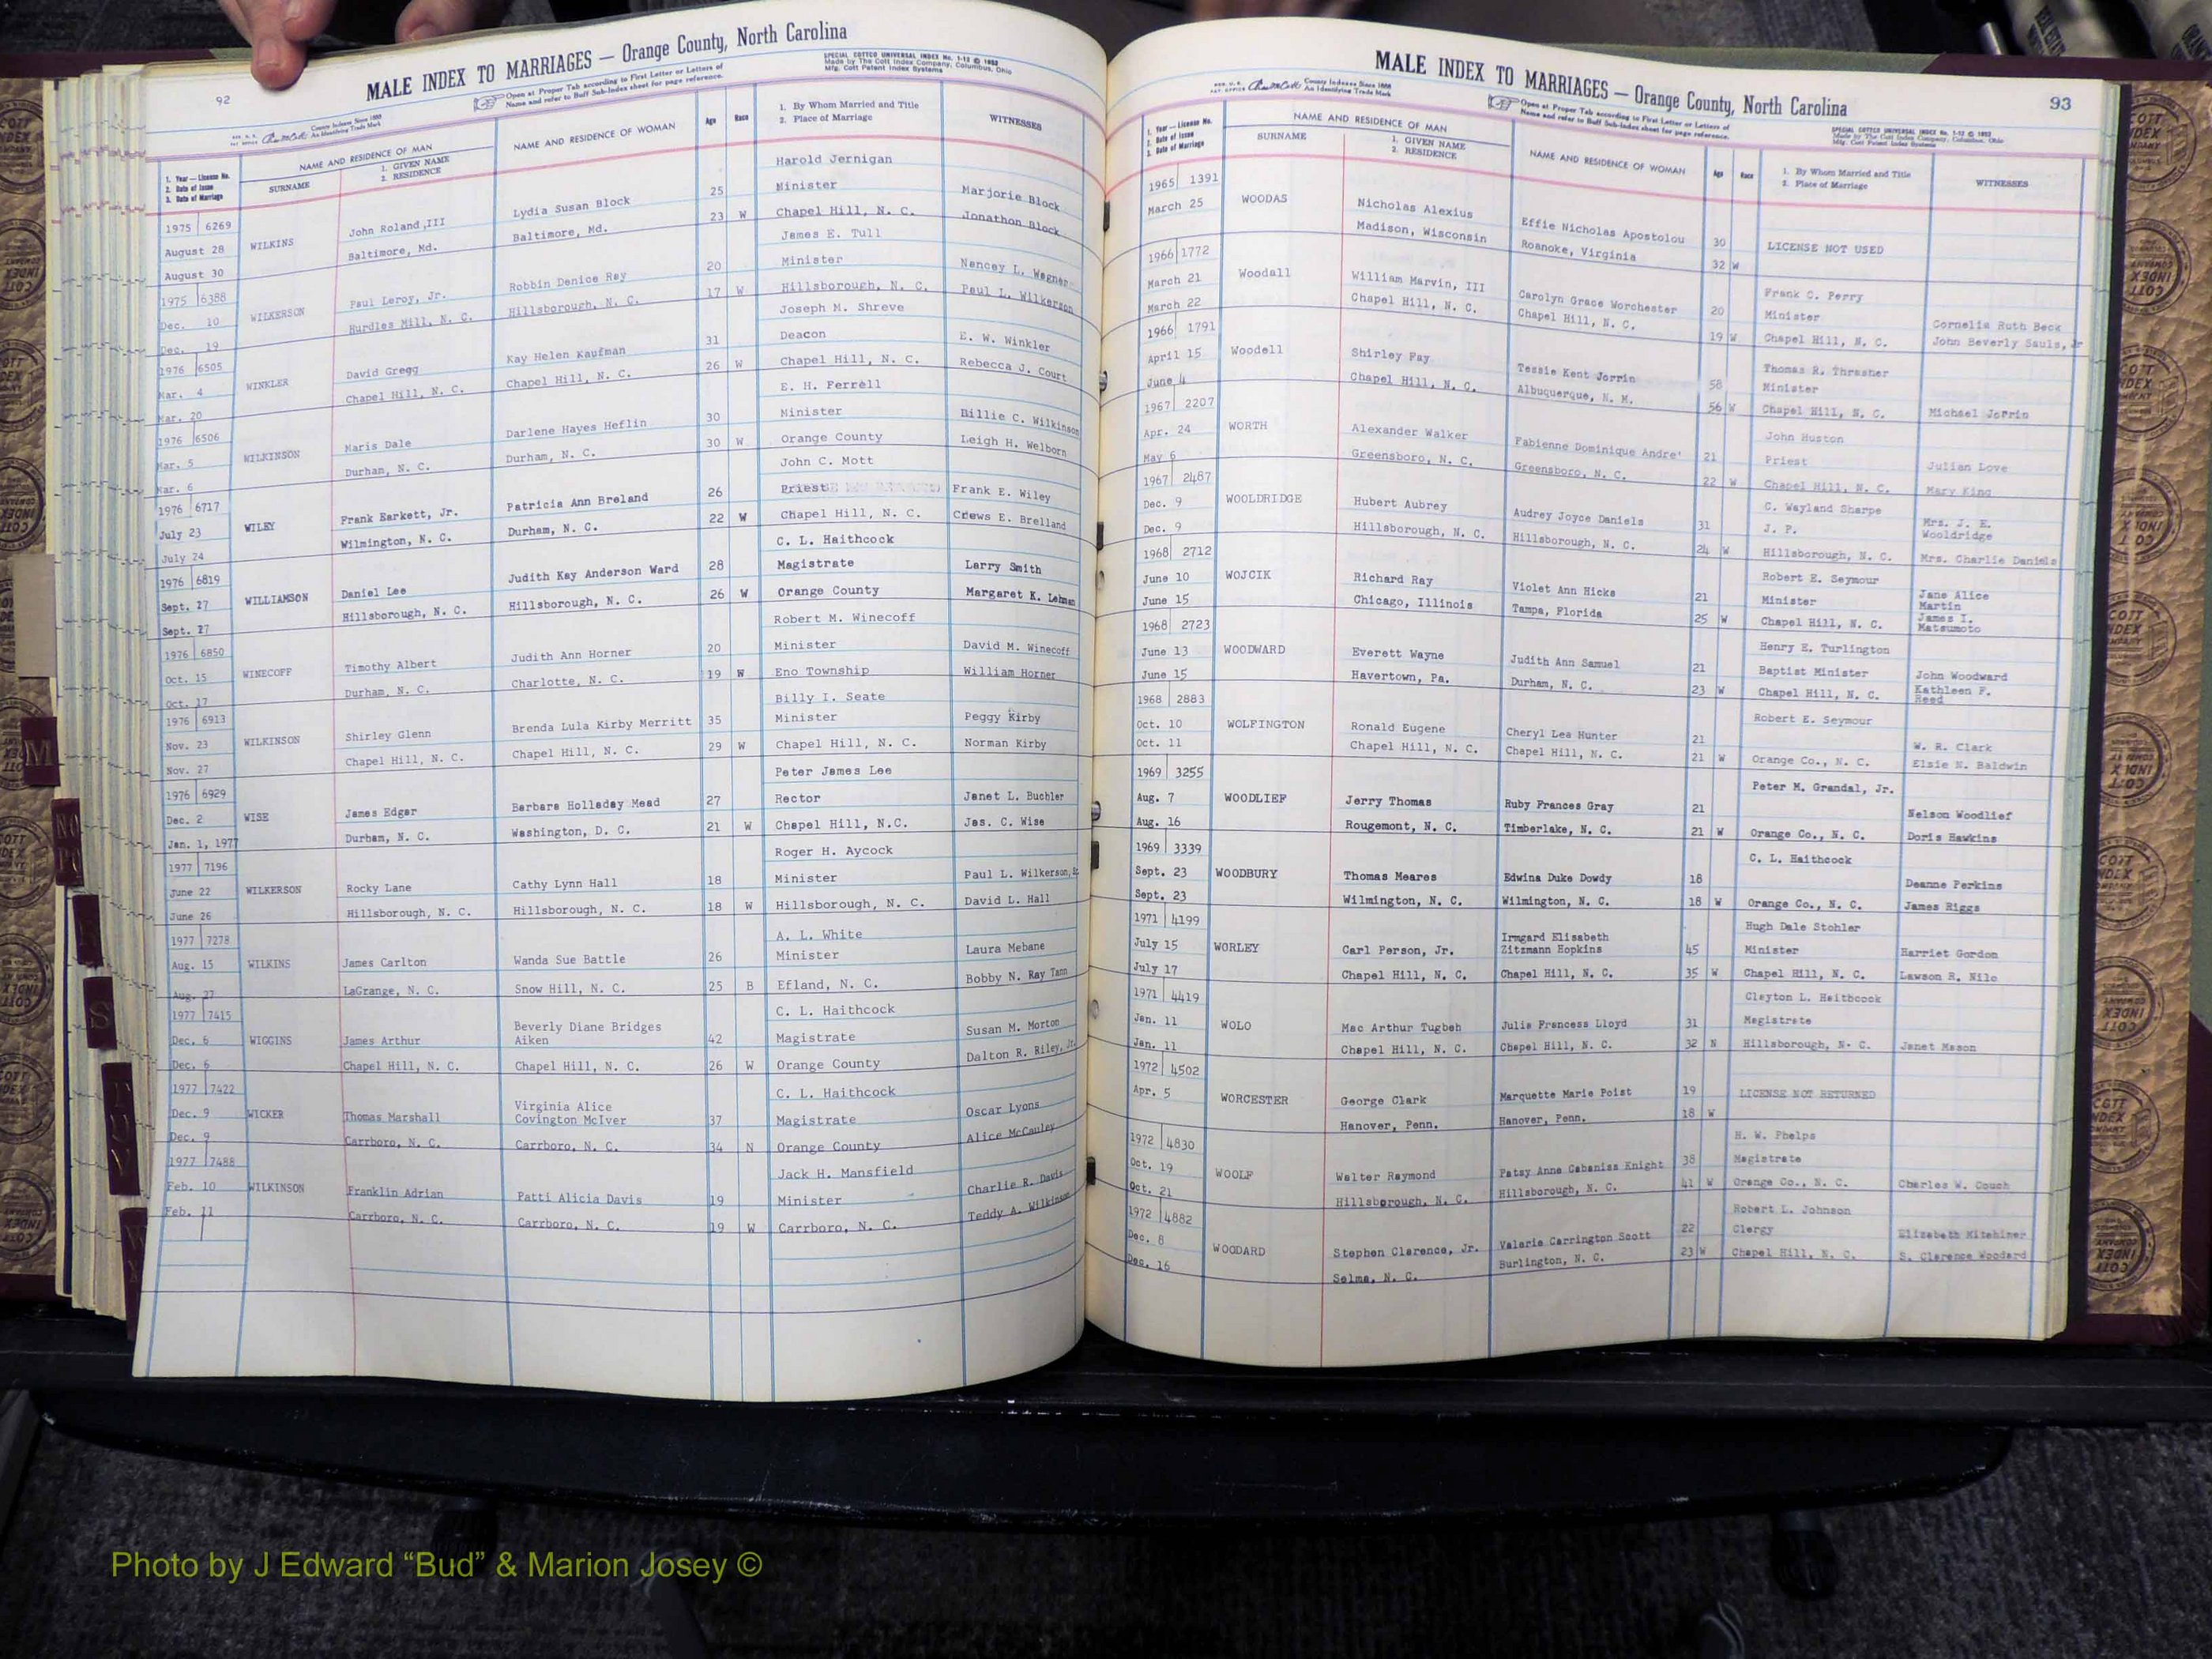 92
MALE INDEX TO MARRIAGES — Orange County, North Carolina
Open at Proper Tab according to First Letter or Letters of
Name and refer to Buff Sub-Index sheet for page reference.
SPECIAL COTTCO UNIVERSAL INDEX No. 1-12 © 1952
Made by The Cott Index Company, Columbus, Ohio
Mfg. Cott Patent Index Systems
County Indexes Since 1888
An Identifying Trade Mark
1. Year — License No.
2. Date of Issue
3. Date of Marriage
NAME AND RESIDENCE OF MAN
SURNAME
1. GIVEN NAME
2. RESIDENCE
NAME AND RESIDENCE OF WOMAN
Age
Race
1. By Whom Married and Title
2. Place of Marriage
WITNESSES
Harold Jernigan
1975 6269 Lydia Susan Block 25 Minister Marjorie Block
August 28 WILKINS John Roland,III Baltimore, Md. 23 W Chapel Hill, N. C. Jonathon Block
August 30 Baltimore, Md.
James E. Tull
1975 6388 Robbin Denice Ray 20 Minister Nancey L. Wagner
Dec. 10 WILKERSON Paul Leroy, Jr. Hillsborough, N. C. 17 W Hillsborough, N. C. Paul L. Wilkerson
Dec. 19 Hurdles Mill, N. C.
Joseph M. Shreve
1976 6505 Kay Helen Kaufman 31 Deacon E. W. Winkler
Mar. 4 WINKLER David Gregg Chapel Hill, N. C. 26 W Chapel Hill, N. C. Rebecca J. Court
Mar. 20 Chapel Hill, N. C.
E. H. Ferrell
1976 6506 Darlene Hayes Heflin 30 Minister Billie C. Wilkinson
Mar. 5 WILKINSON Maris Dale Durham, N. C. 30 W Orange County Leigh H. Welborn
Mar. 6 Durham, N. C.
John C. Mott
1976 6717 Patricia Ann Breland 26 Priest Frank E. Wiley
July 23 WILEY Frank Earkett, Jr. Durham, N. C. 22 W Chapel Hill, N. C. Crews E. Brelland
July 24 Wilmington, N. C.
C. L. Haithcock
1976 6819 Judith Kay Anderson Ward 28 Magistrate Larry Smith
Sept. 27 WILLIAMSON Daniel Lee Hillsborough, N. C. 26 W Orange County Margaret K. Lehman
Sept. 27 Hillsborough, N. C.
Robert M. Winecoff
1976 6850 Judith Ann Horner 20 Minister David M. Winecoff
Oct. 15 WINECOFF Timothy Albert Charlotte, N. C. 19 W Eno Township William Horner
Oct. 17 Durham, N. C.
Billy I. Seate
1976 6913 Brenda Lula Kirby Merritt 35 Minister Peggy Kirby
Nov. 23 WILKINSON Shirley Glenn Chapel Hill, N. C. 29 W Chapel Hill, N. C. Norman Kirby
Nov. 27 Chapel Hill, N. C.
Peter James Lee
1976 6929 Barbara Holladay Mead 27 Rector Janet L. Buchler
Dec. 2 WISE James Edgar Washington, D. C. 21 W Chapel Hill, N.C. Jas. C. Wise
Jan. 1, 1977 Durham, N. C.
Roger H. Aycock
1977 7196 Cathy Lynn Hall 18 Minister Paul L. Wilkerson, Sr
June 22 WILKERSON Rocky Lane
June 26 Hillsborough, N. C. Hillsborough, N. C. 18 W Hillsborough, N. C. David L. Hall
A. L. White
1977 7278 Minister Laura Mebane
Aug. 15 WILKINS James Carlton Wanda Sue Battle 26
Aug. 27 LaGrange, N. C. Snow Hill, N. C. 25 B Efland, N. C. Bobby N. Ray Tann
C. L. Haithcock
1977 7415 Beverly Diane Bridges Susan M. Morton
Dec. 6 WIGGINS James Arthur Aiken 42 Magistrate
Dec. 6 Chapel Hill, N. C. Chapel Hill, N. C. 26 W Orange County Dalton R. Riley, Jr.
C. L. Haithcock
1977 7422 Virginia Alice Oscar Lyons
Dec. 9 WICKER Thomas Marshall Covington McIver 37 Magistrate
Dec. 9 Carrboro, N. C. Carrboro, N. C. 34 N Orange County Alice McCauley
Jack H. Mansfield
1977 7488 Charlie R. Davis
Feb. 10 WILKINSON Franklin Adrian Patti Alicia Davis 19 Minister
Feb. 11 Carrboro, N. C. Carrboro, N. C. 19 W Carrboro, N. C. Teddy A. Wilkinson
MALE INDEX TO MARRIAGES — Orange County, North Carolina
93
County Indexes Since 1888
An Identifying Trade Mark
Open at Proper Tab according to First Letter or Letters of
Name and refer to Buff Sub-Index sheet for page reference.
SPECIAL COTTCO UNIVERSAL INDEX No. 1-12 © 1952
Made by The Cott Index Company, Columbus, Ohio
Mfg. Cott Patent Index Systems
1. Year — License No.
2. Date of Issue
3. Date of Marriage
NAME AND RESIDENCE OF MAN
SURNAME
1. GIVEN NAME
2. RESIDENCE
NAME AND RESIDENCE OF WOMAN
Age
Race
1. By Whom Married and Title
2. Place of Marriage
WITNESSES
1965 1391
March 25 WOODAS Nicholas Alexius Effie Nicholas Apostolou 30 LICENSE NOT USED
Madison, Wisconsin Roanoke, Virginia 32 W
1966 1772 Frank C. Perry
March 21 Woodall William Marvin, III Carolyn Grace Worchester 20 Minister Cornelia Ruth Beck
March 22 Chapel Hill, N. C. Chapel Hill, N. C. 19 W Chapel Hill, N. C. John Beverly Sauls, Jr
1966 1791 Thomas R. Thrasher
April 15 Woodell Shirley Fay Tessie Kent Jorrin 58 Minister
June 4 Chapel Hill, N. C. Albuquerque, N. M. 56 W Chapel Hill, N. C. Michael Jorrin
1967 2207 John Huston
Apr. 24 WORTH Alexander Walker Fabienne Dominique Andre' 21 Priest Julian Love
May 6 Greensboro, N. C. Greensboro, N. C. 22 W Chapel Hill, N. C. Mary King
1967 2487 C. Wayland Sharpe
Dec. 9 WOOLDRIDGE Hubert Aubrey Audrey Joyce Daniels 31 J. P. Mrs. J. E.
Wooldridge
Dec. 9 Hillsborough, N. C. Hillsborough, N. C. 24 W Hillsborough, N. C. Mrs. Charlie Daniels
1968 2712 Robert E. Seymour
June 10 WOJCIK Richard Ray Violet Ann Hicks 21 Minister Jane Alice
Martin
June 15 Chicago, Illinois Tampa, Florida 25 W Chapel Hill, N. C. James I.
Matsumoto
1968 2723 Henry E. Turlington
June 13 WOODWARD Everett Wayne Judith Ann Samuel 21 Baptist Minister John Woodward
June 15 Havertown, Pa. Durham, N. C. 23 W Chapel Hill, N. C. Kathleen F.
Reed
1968 2883 Robert E. Seymour
Oct. 10 WOLFINGTON Ronald Eugene Cheryl Lea Hunter 21 W. R. Clark
Oct. 11 Chapel Hill, N. C. Chapel Hill, N. C. 21 W Orange Co., N. C. Elsie N. Baldwin
1969 3255 Peter M. Grandal, Jr.
Aug. 7 WOODLIEF Jerry Thomas Ruby Frances Gray 21 Nelson Woodlief
Aug. 16 Rougemont, N. C. Timberlake, N. C. 21 W Orange Co., N. C. Doris Hawkins
1969 3339 C. L. Haithcock
Sept. 23 WOODBURY Thomas Meares Edwina Duke Dowdy 18 Deanne Perkins
Sept. 23 Wilmington, N. C. Wilmington, N. C. 18 W Orange Co., N. C. James Riggs
1971 4199 Hugh Dale Stohler
Irmgard Elisabeth
July 15 WORLEY Carl Person, Jr. Zitzmann Hopkins 45 Minister Harriet Gordon
July 17 Chapel Hill, N. C. Chapel Hill, N. C. 35 W Chapel Hill, N. C. Lawson R. Nilo
1971 4419 Clayton L. Haithcock
Jan. 11 WOLO Mac Arthur Tugbeh Julia Francess Lloyd 31 Magistrate
Jan. 11 Chapel Hill, N. C. Chapel Hill, N. C. 32 N Hillsborough, N. C. Janet Mason
1972 4502
Apr. 5 WORCESTER George Clark Marquette Marie Poist 19 LICENSE NOT RETURNED
Hanover, Penn. Hanover, Penn. 18 W
1972 4830 H. W. Phelps
Oct. 19 WOOLF Walter Raymond Patsy Anne Cabaniss Knight 38 Magistrate
Oct. 21 Hillsborough, N. C. Hillsborough, N. C. 41 W Orange Co., N. C. Charles W. Couch
1972 4882 Robert L. Johnson
Dec. 8 WOODARD Stephen Clarence, Jr. Valerie Carrington Scott 22 Clergy Elizabeth Kitchiner
Dec. 16 Selma, N. C. Burlington, N. C. 23 W Chapel Hill, N. C. S. Clarence Woodard
M
S
Photo by J Edward “Bud” & Marion Josey ©